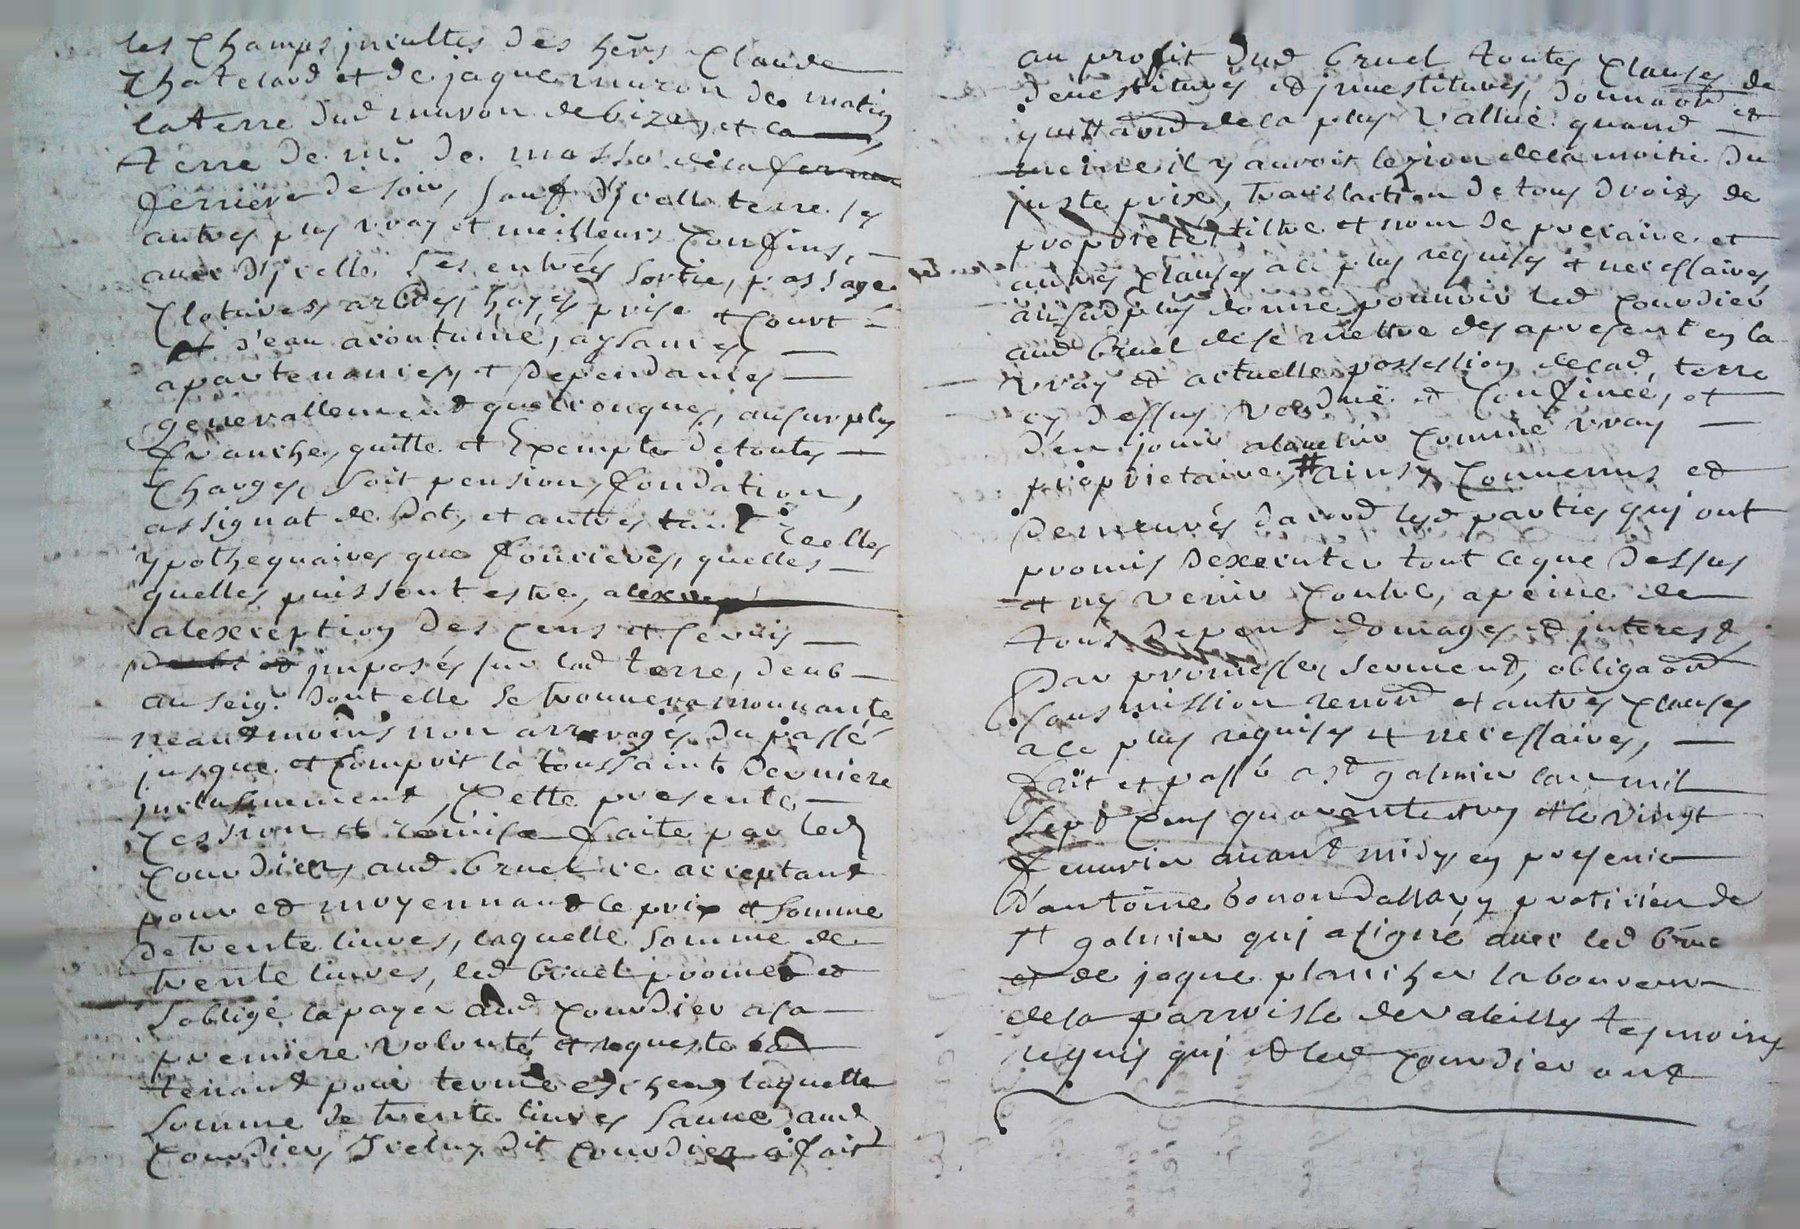 les Champs jncultes des hers Claude
Chatelard et de jaque muron de matin
la terre dud muron de bize, et la
terre de mr. de masso de la
ferriere de soir, sauf d'jcelle terre ses
autres plus vrays et meilleurs Confins,
avec d'jcelle ses entrées sortie, passage
Clotures, arbres, hayes prise et Court
d'eau acoutumé, aysances
apartenances, et Dependances
generallement quelconques, au surplus
franche, quitte et Exempte de toutes
Charges, soit pension, fondation,
assignat de Dot, et autres tant reelles
ypothequaires que foncieres, quelles
quelles puissent estre,
alexception des Cens et servis
jmposés sur lad terre, deub
au seigr. dont elle se trouvera mouvante
neantmoins non arreragés du passé
jusque et Comprit la toussaint derniere
jnclusivement, Cette presente
Cession et remise faite par led
Courdier, aud bruel ce acceptant
pour et moyennant le prix et somme
de trente livres, laquelle somme de
trente livres, led bruel promet et
s'obligé la payer aud Courdier a sa
premiere volonté et requeste
tenant pour terme eschene laquelle
somme de trente livres sauve aud
Courdier, jceluy dit Courdier a fait
au profit dud bruel toutes Clauses de
devestitures et jnvestitures, donnaon et
quittaond de la plus vallue quand
mesme il y auroit lezion de la moitié du
juste prix, translaction de tous droits de
proprieté, tiltre et nom de precaire et
autres Clauses a ce plus requises et necessaires,
ausurplus donne pouvoir led Courdier
aud bruel de se mettre des apresent en la
vray et actuelle possession de lad, terre
cy dessus vendue et Confinée, et
d'en jouir alavenir Comme vray
proprietaire, # ainsy Convenus et
Demeurés dacord lesd parties quj ont
promis dexecuter tout ceque dessus
et ny venir Contre, a peine de
tous depens domages et jnterest,
Par promesses, serment, obligaond
sousmission renond et autres Clauses
a ce plus requises et necessaires,
fait et passé a st galmier lan mil
sept Cens quarante et le vingt
fevrier avant midy en presence
d'antoine praticien de
st galmier quj a signé avec led bruel
et de jaque plancher laboureur
de la parroisse de valeille tesmoins
requis quj et led Courdier ont